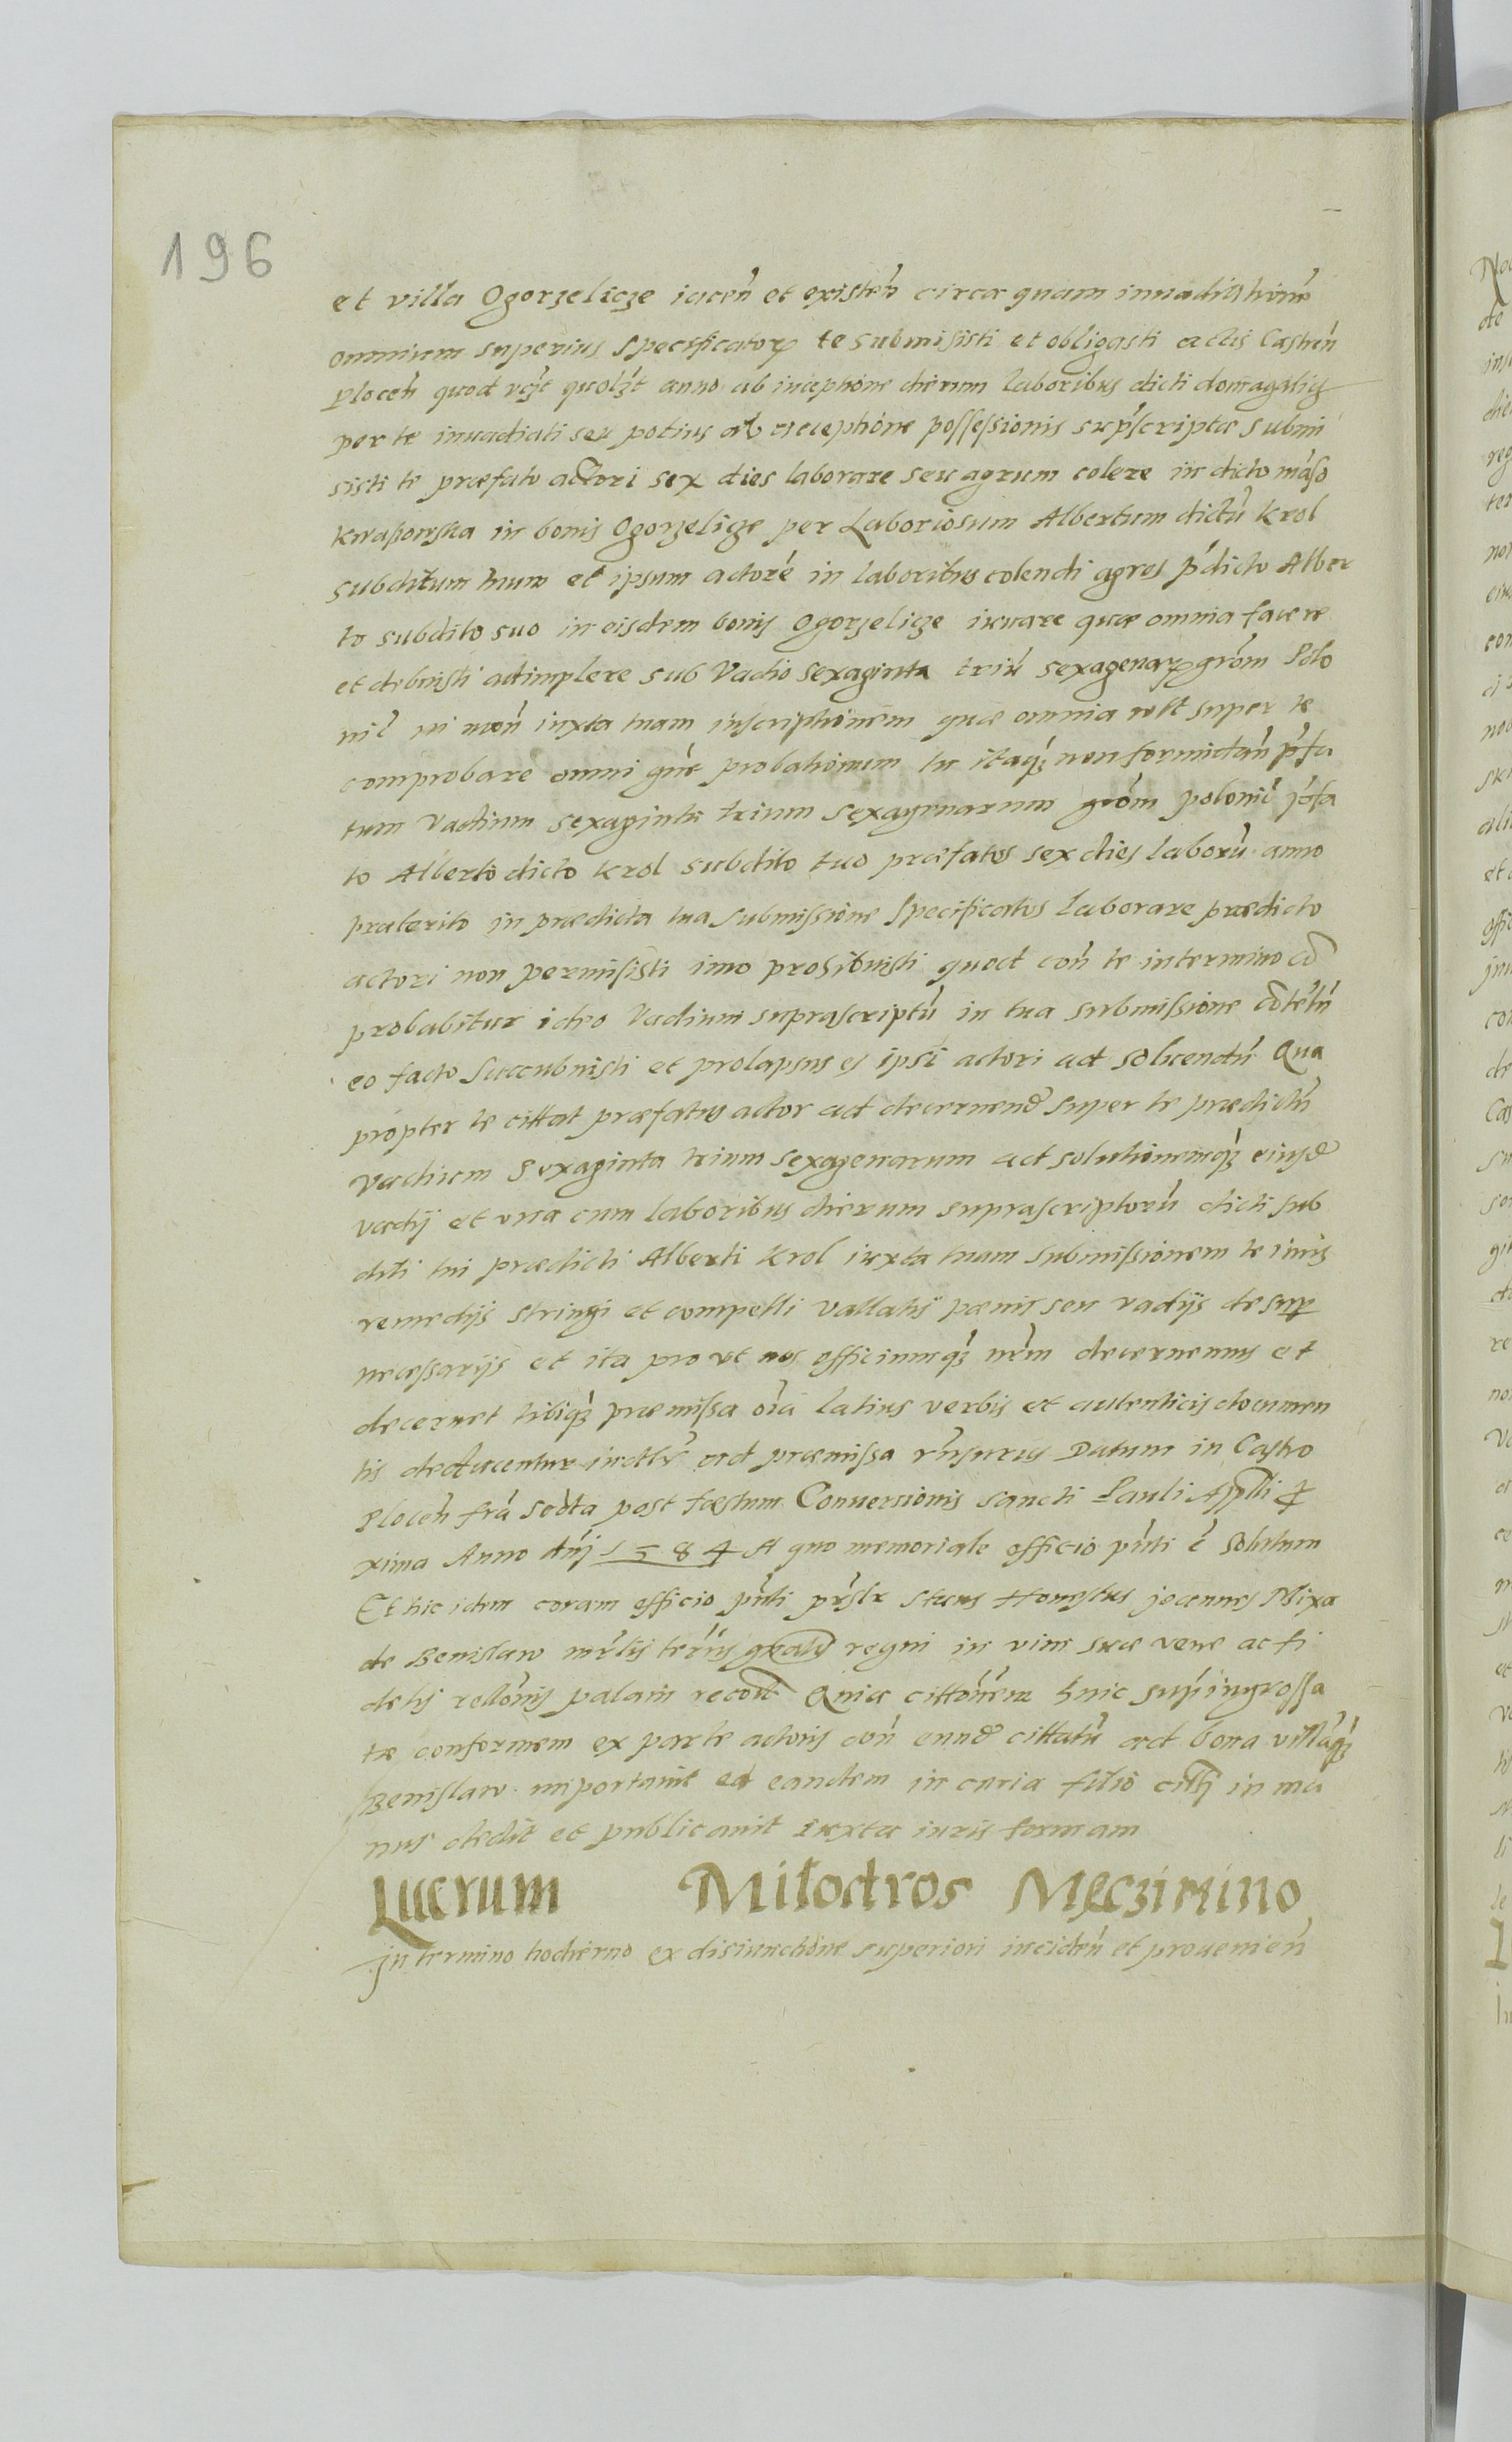 196
et villa Ogorzelicze iacen̄ et existen̄ circa quam inuaditionē
omnium superius specificator te submisisti et obligasti actis Castren̄
Plocen̄ quod vḡt quolz̄t anno ab inceptione dierum laboribus dicti domagalicz
per te inuadiati seu potius ab receptione possessionis supscriptæ submi
sisti te præfato actori sex dies laborare seu agrum colere in dicto māso
Kwaponska in bonis Ogorzelicze per Laboriosum Albertum dictū Krol
subditum tuum et ipsum actorē in laboribus colendi agros p̄dicto Alber
to subdito suo in eisdem bonis Ogorzelicze iuuare quæ omnia facere
et debuisti adimplere sub Vadio sexaginta triū sexagenar grōm Polo
nic̄ in mon̄ iuxta tuam inscriptionem quæ omnia vult super te
comprobare omni gn̄e probationum tu itaqz̄ non formidan̄ p̄fa
tum vadium sexaginta trium sexagenarum grōm polonic̄ p̄fa
to Alberto dicto Krol subdito tuo præfatos sex dies laborū anno
præterito in prædicta tua submissione specificatos laborare prædicto
actori non permisisti imo prohibuisti quod con̄ te in termino cō
probabitur ideo Vadium suprascriptū in tua submissione cōtētū
eo facto succubuisti et prolapsus es ipsi actori ad soluendū Qua
propter te cittat præfatus actor ad decernend super te prædictū
vadium sexaginta trium sexagenarum ad solutionemqz̄ eiusd
vadij et vna cum laboribus dierum suprascriptorū dicti sub
diti tui prædicti Alberti Krol iuxta tuam submissionem te iuris
remedijs stringi et compelli vallatis pœnis seu vadijs desup
necessarijs et ita pro vt nos officiumqz̄ nr̄m decernemus et
decernet tibiqz̄ præmissa oīa latius verbis et autenticis documen
tis deducentur ad præmissa rn̄surus Datum in Castro
Plocen̄ frā scd̄ta post fæstum Conuersionis sancti Pauli Appli p
xima Anno dnj 1584 A quo memoriale officio pn̄ti ē solutum
Et hic idem coram officio pn̄ti pr̄slr stans Honestus joannes Mixa
de Benislaw mr̄lis terr̄us gnalis regni in vim suæ veræ ac fi
delis rellōnis palam recōt Quia cittōnem huic sup̄ingrossa
tæ conformem ex parte actoris con̄ eund cittatū ad bona villāqz̄
Benislaw importauit ed eandem in curia filio citti in ma
nus dedit et publicauit iuxta iuris formam
Lucrum Milodros Męczimino
Jn termino hodierno ex disiunctione superiori inciden̄ et prouenien̄